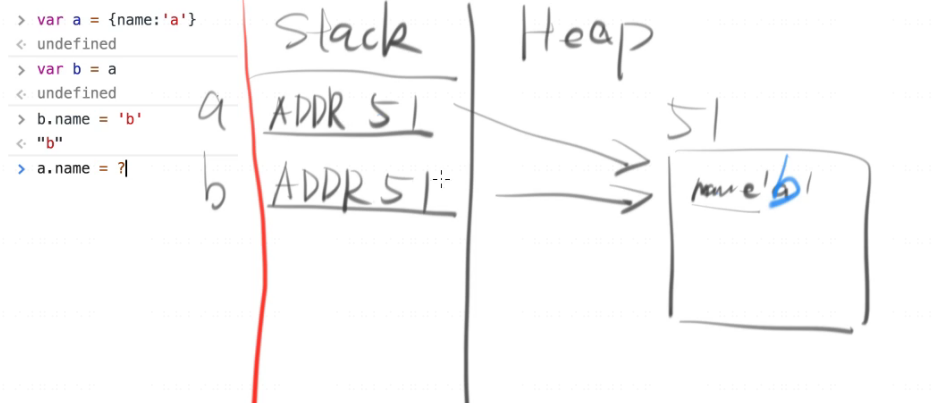 > var a = {name:'a'}
<· undefined
> var b = a
<· undefined
> b.name = 'b'
<· "b"
> a.name = ?
Stack
Heap
a ADDR 51
b ADDR 51
51
name 'b'